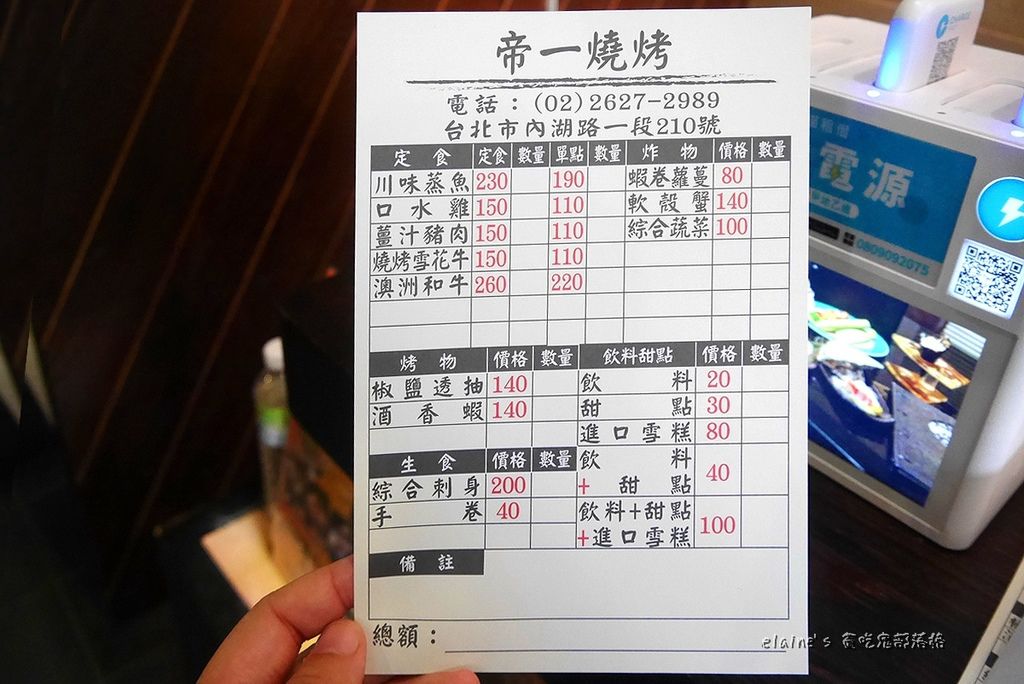 帝一燒烤
電話：(02)2627-2989
台北市內湖路一段210號
定食 定食 數量 單點 數量 炸物 價格 數量
川味蒸魚 230 190 蝦卷蘿蔓 80
口水雞 150 110 軟殼蟹 140
薑汁豬肉 150 110 綜合蔬菜 100
燒烤雪花牛 150 110
澳洲和牛 260 220
烤物 價格 數量 飲料甜點 價格 數量
椒鹽透抽 140 飲料 20
酒香蝦 140 甜點 30
進口雪糕 80
生食 價格 數量 飲料
綜合刺身 200 +甜點 40
手卷 40 飲料+甜點
+進口雪糕 100
備註
總額：
CHARGE
電源
0809092075
elaine's 貪吃鬼部落格